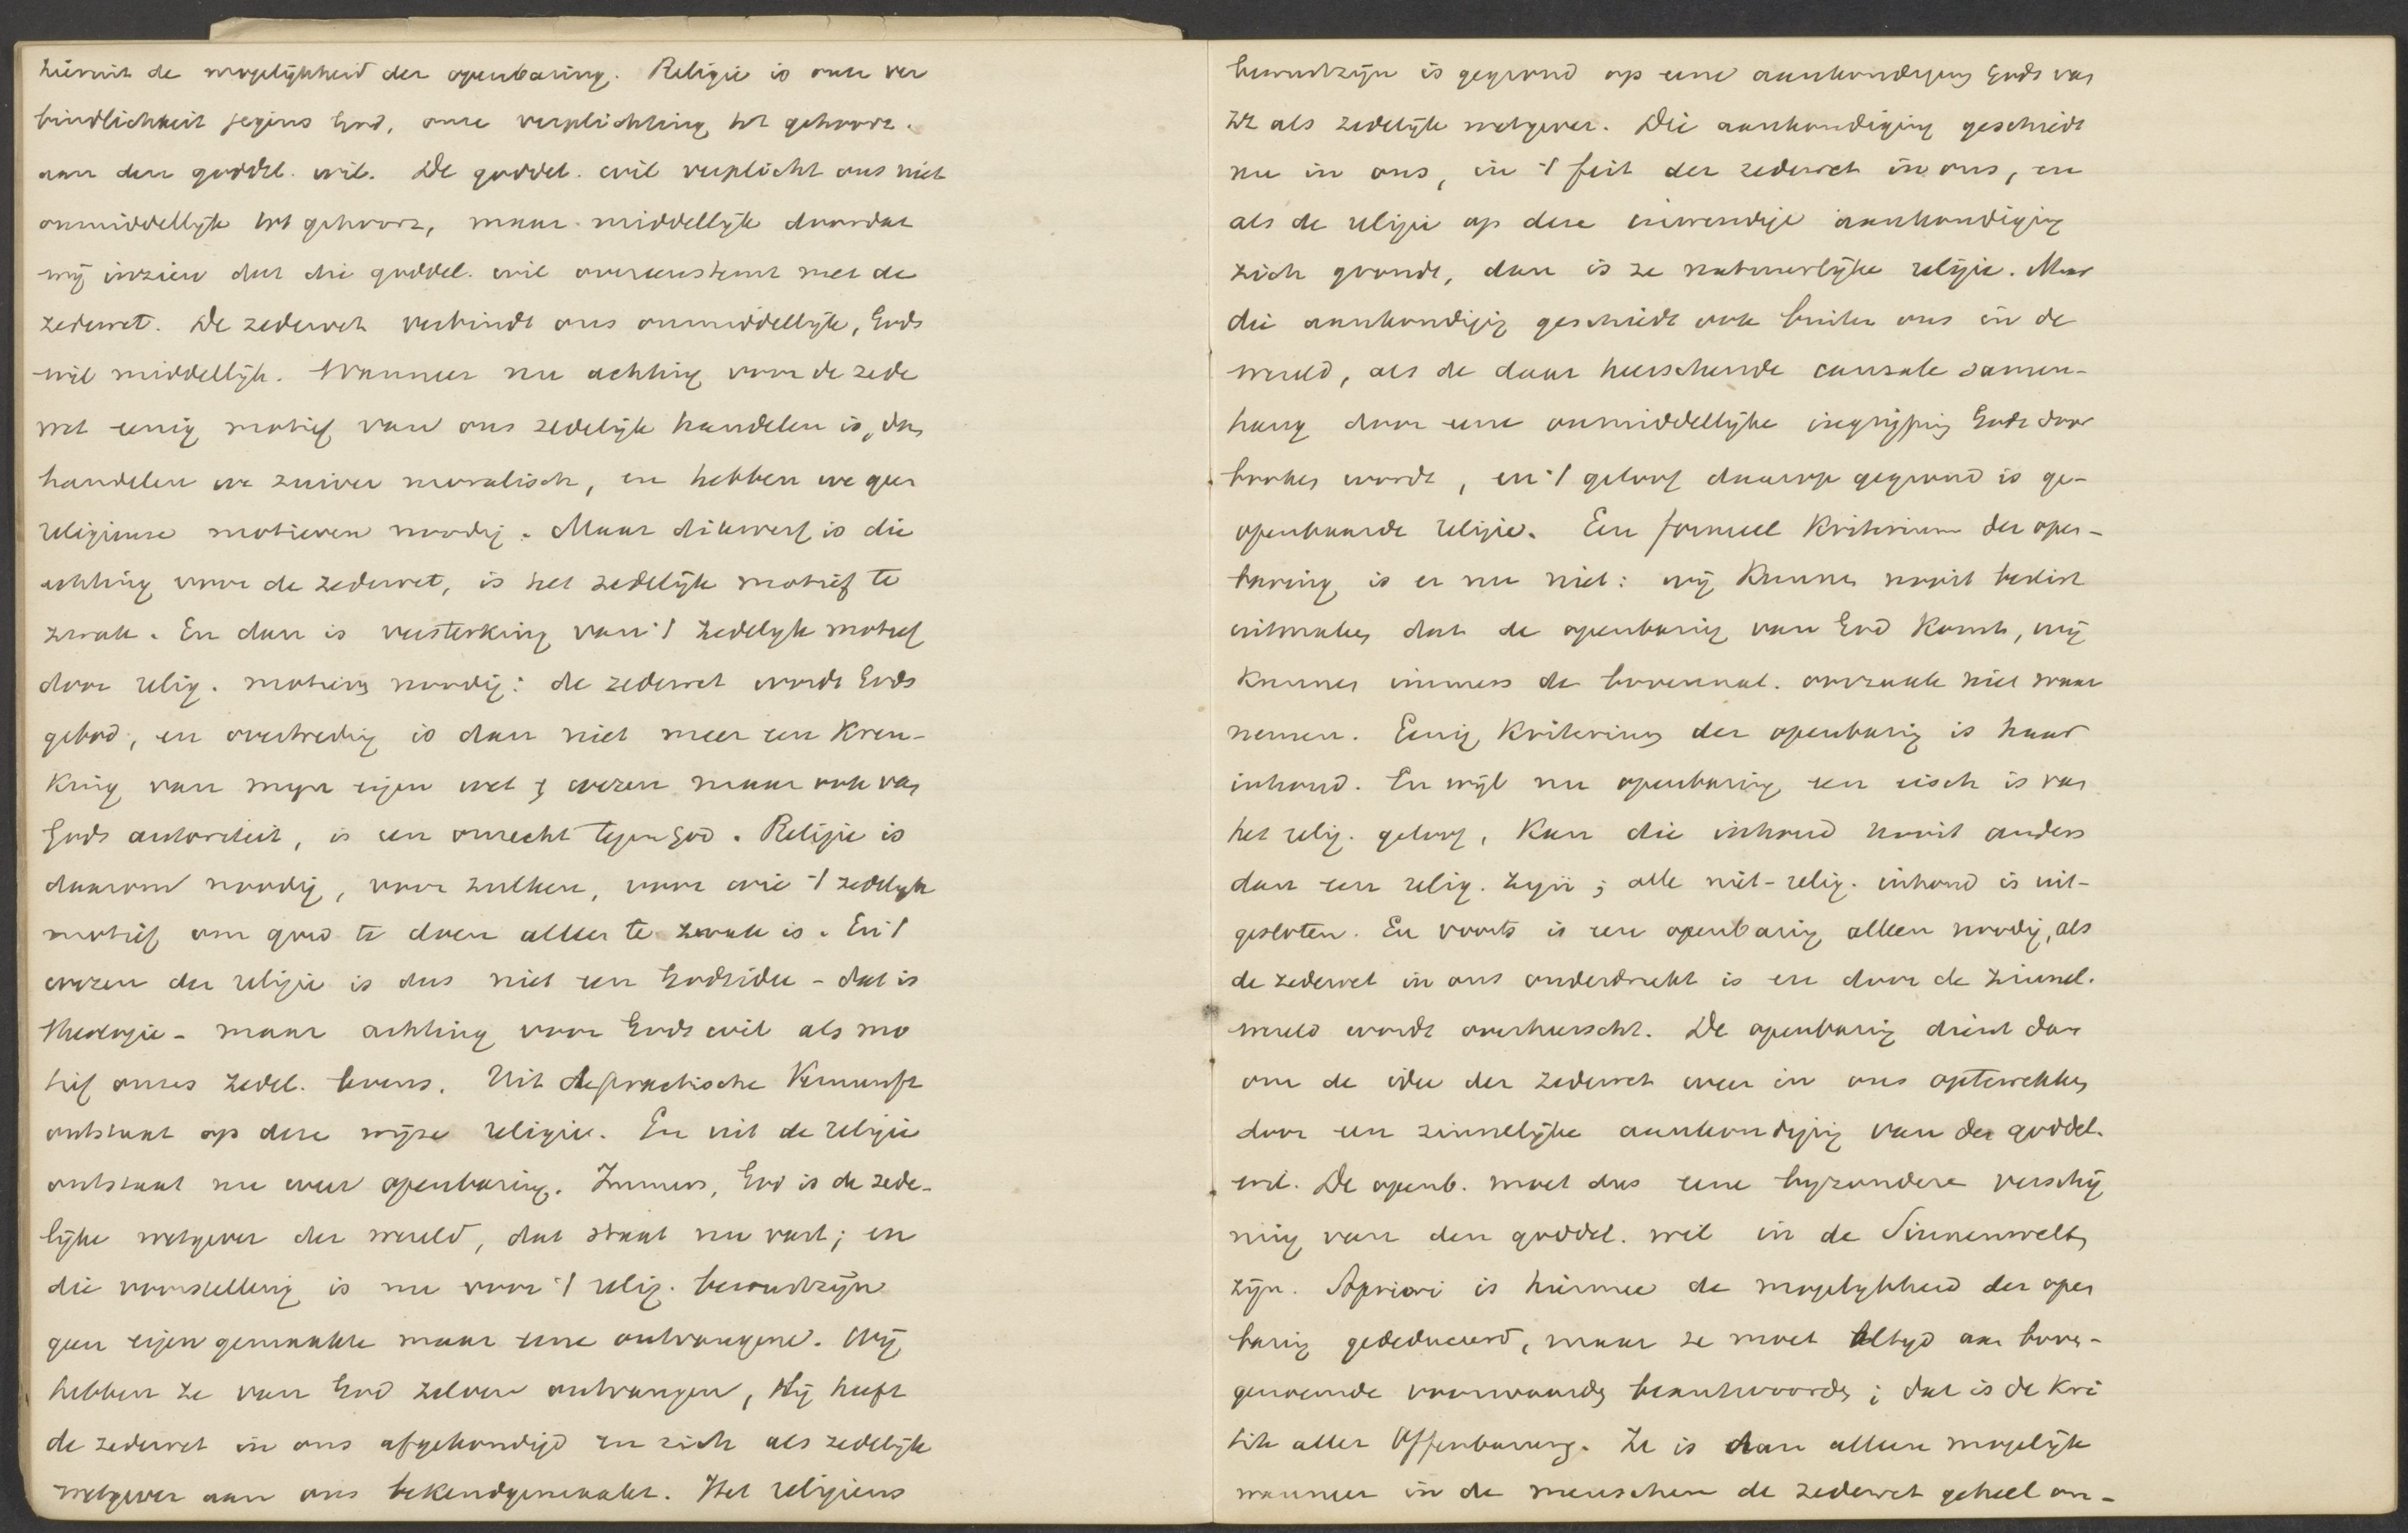 hiermit de mogelijkheid der openbaring. Religie is onze ver
bindlichkeit jegens God, onze verplichting tot gehoorz.
aan den goddel. wil. De goddel. wil verplicht ons niet
onmiddellijk tot gehoorz, maar middellijk doordat
wij inzien dat die goddel. wil overeenstemt met de
zedewet. De zedewet verbindt ons onmiddellijk, Gods
wil middellijk. Wanneer nu achting voor de zede
wet eenig motief van ons zedelijk handelen is, dan
handelen we zuiver moralisch, en hebben we geen
religieuse motieven noodig. Maar dikwerf is die
achting voor de zedewet, is het zedelijk motief te
zwak. En dan is versterking van 't zedelijk motief
door relig. motieven noodig: de zedewet wordt Gods
gebod, en overtreding is dan niet meer een kren-
king van mijn eigen wet & wezen maar ook van
Gods autoriteit, is een onrecht tegen God. Religie is
daarom noodig, voor zulken, voor wie 't zedelijk
motief om goed te doen alleen te zwak is. En 't
wezen der religie is dus niet een Godsidee - dat is
theologie - maar achting voor Gods wil als mo
tief onzes zedel. levens. Uit de practische Vernunft
ontstaat op deze wijze religie. En uit de religie
ontstaat nu weer openbaring. Immers, God is de zede-
lijke wetgever der wereld, dat staat nu vast; en
die voorstelling is nu voor 't relig. bewustzijn
geen eigen gemaakte maar eene ontvangene. Wij
hebben ze van God zelven ontvangen, Hij heeft
de zedewet in ons afgekondigd en zich als zedelijk
wetgever aan ons bekendgemaakt. Het religieus
bewustzijn is gegrond op eene aankondiging Gods van
zich als zedelijk wetgever. Die aankondiging geschiedt
nu in ons, in 't feit der zedewet in ons, en
als de religie op deze inwendige aankondiging
zich grondt, dan is ze natuurlijke religie. Maar
die aankondiging geschiedt ook buiten ons in de
wereld, als de daar heerschende causale samen-
hang door eene onmiddellijke ingrijping Gods door
broken wordt, en 't geloof daarop gegrond is ge-
openbaarde religie. Een formeel Kriterium der open-
baring is er nu niet: wij kunnen nooit beslist
uitmaken dat de openbaring van God komt, wij
kunnen immers de bovennat. oorzaak niet waar
nemen. Eenig Kriterium der openbaring is haar
inhoud. En wijl nu openbaring een eisch is van
het relig. geloof, kan die inhoud nooit anders
dan een relig. zijn; alle niet-relig. inhoud is uit-
gesloten. En voorts is een openbaring alleen noodig, als
de zedewet in ons onderdrukt is en door de zinnel.
wereld wordt overheerscht. De openbaring dient dan
om de idee der zedewet weer in ons optewekken
door een zinnelijke aankondiging van den goddel.
wil. De openb. moet dus eene byzondere verschij
ning van den goddel. wil in de Sinnenwelt
zijn. Apriori is hiermee de mogelijkheid der open
baring gededuceerd, maar ze moet altijd aan boven-
genoemde voorwaarden beantwoorden; dat is de Kri
tik aller Offenbarung. Ze is dan alleen mogelijk
wanneer in de menschen de zedewet geheel on-